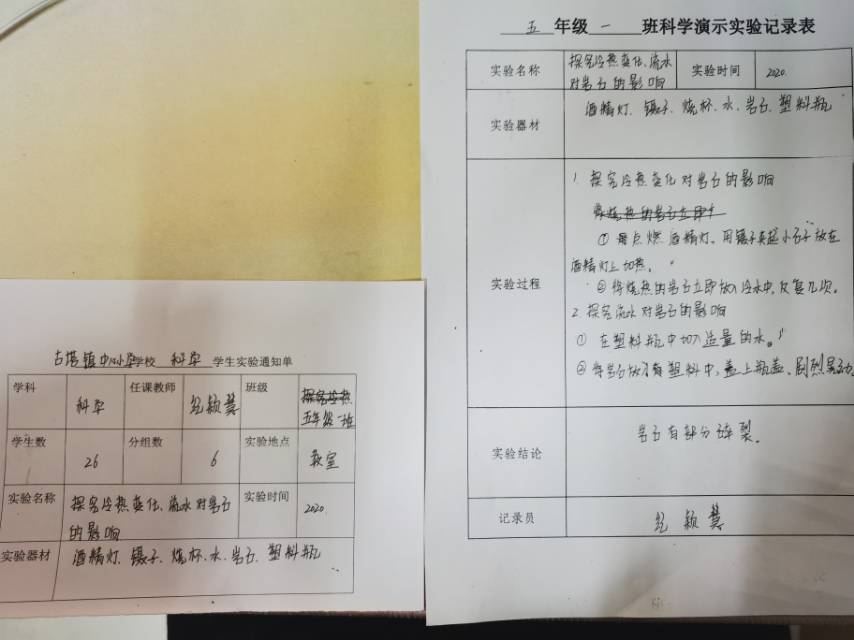 古塔镇中心小学学校 科学 学生实验通知单
学科 科学 任课教师 纪颖慧 班级 五年级一班
学生数 26 分组数 6 实验地点 教室
实验名称 探究冷热变化、流水对岩石的影响 实验时间 2020.
实验器材 酒精灯、镊子、烧杯、水、岩石、塑料瓶
五 年级 一 班科学演示实验记录表
实验名称 探究冷热变化、流水
对岩石的影响 实验时间 2020.
实验器材 酒精灯、镊子、烧杯、水、岩石、塑料瓶
实验过程
1. 探究冷热变化对岩石的影响
① 点燃酒精灯。用镊子夹起小石子放在
酒精灯上加热。
② 将烧热的岩石立即放入冷水中,反复几次。
2 探究流水对岩石的影响
① 在塑料瓶中加入适量的水。
② 将岩石放入塑料中,盖上瓶盖,剧烈晃动
实验结论 岩石有部分碎裂。
记录员 纪颖慧